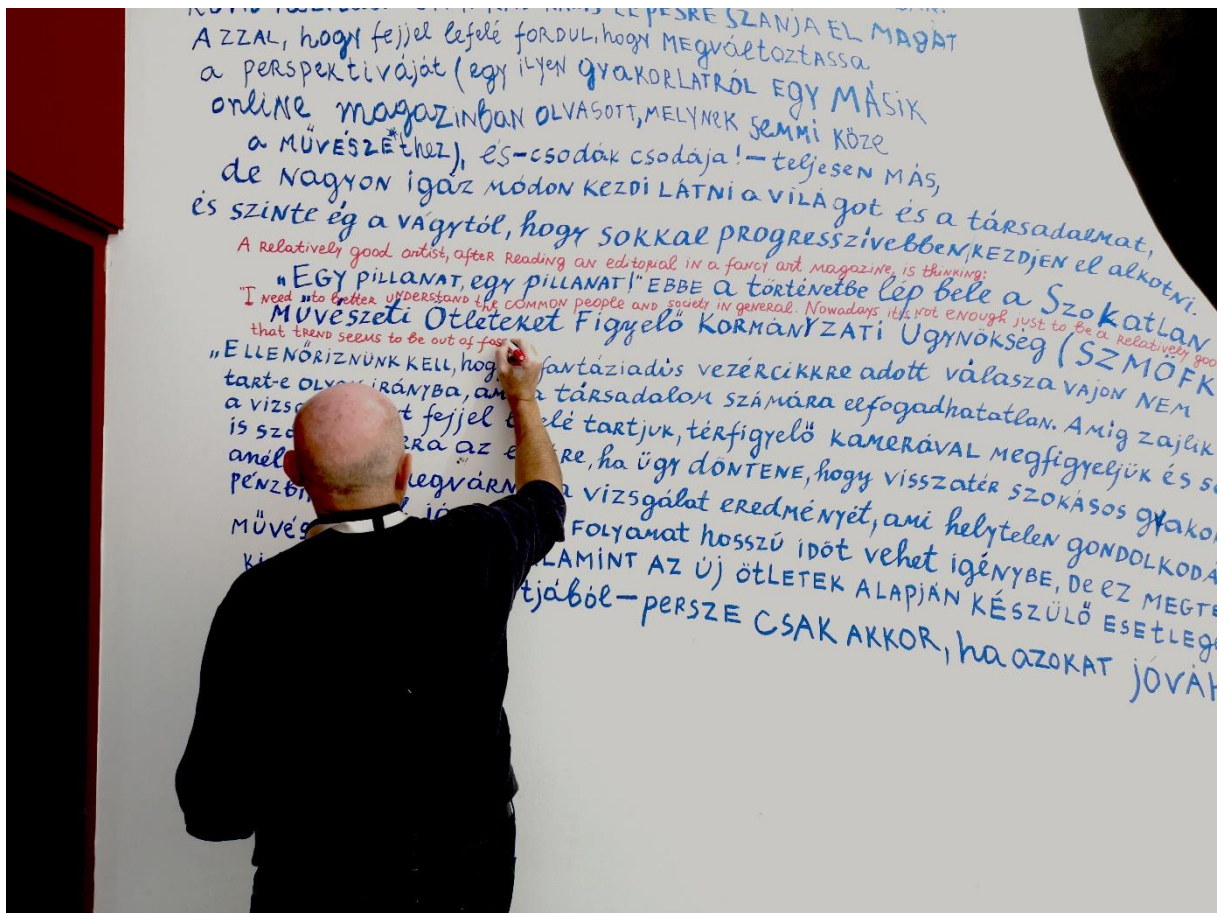 LÉPÉSRE SZÁNJA EL MAGÁT
AZZAL, hogy fejjel lefelé FORDUL, hogy MEGVÁLTOZTASSA
a PERSPEKTÍVÁJÁT (egy ilyen GYAKORLATRÓL EGY MÁSIK
online magazinban OLVASOTT, MELYNEK SEMMI KÖZE
a MŰVÉSZEthez), és—csodák csodája!—teljesen MÁS,
de NAGYON igaz módon KEZDI LÁTNI a VILÁgot és a társadalmat,
és szinte ég a vágytól, hogy SOKKAL PROGRESSZÍVEBBEN KEZDJEN el alkotni.
A relatively good artist, after reading an editorial in a fancy art magazine, is thinking:
„EGY PILLANAT, egy pillanat!" EBBE a történetbe lép bele a Szokatlan
"I need to better understand the common people and society in general. Nowadays it is not enough just to be a relatively good
Művészeti Ötleteket Figyelő KORMÁNYZATI Ügynökség (SZMÖFK
that trend seems to be out of
„ELLENŐRIZNÜNK KELL, hogy fantáziadús vezércikkre adott válasza vajon NEM
tart-e olyan irányba, a társadalom számára elfogadhatatlan. Amíg zajlik
a fejjel lefelé tartjuk, térfigyelő KAMERÁVAL MEGFIGYELJÜK és
is az ha úgy döntene, hogy visszatér szokásos
a vizsgálat eredményét, ami helytelen GONDOLKODÁ
FOLYAMAT hosszú időt vehet igénybe, De ez MEGTE
AZ ÚJ ÖTLETEK ALAPJÁN KÉSZÜLŐ ESETLEGE
—PERSZE CSAK AKKOR, ha azokat JÓVÁH